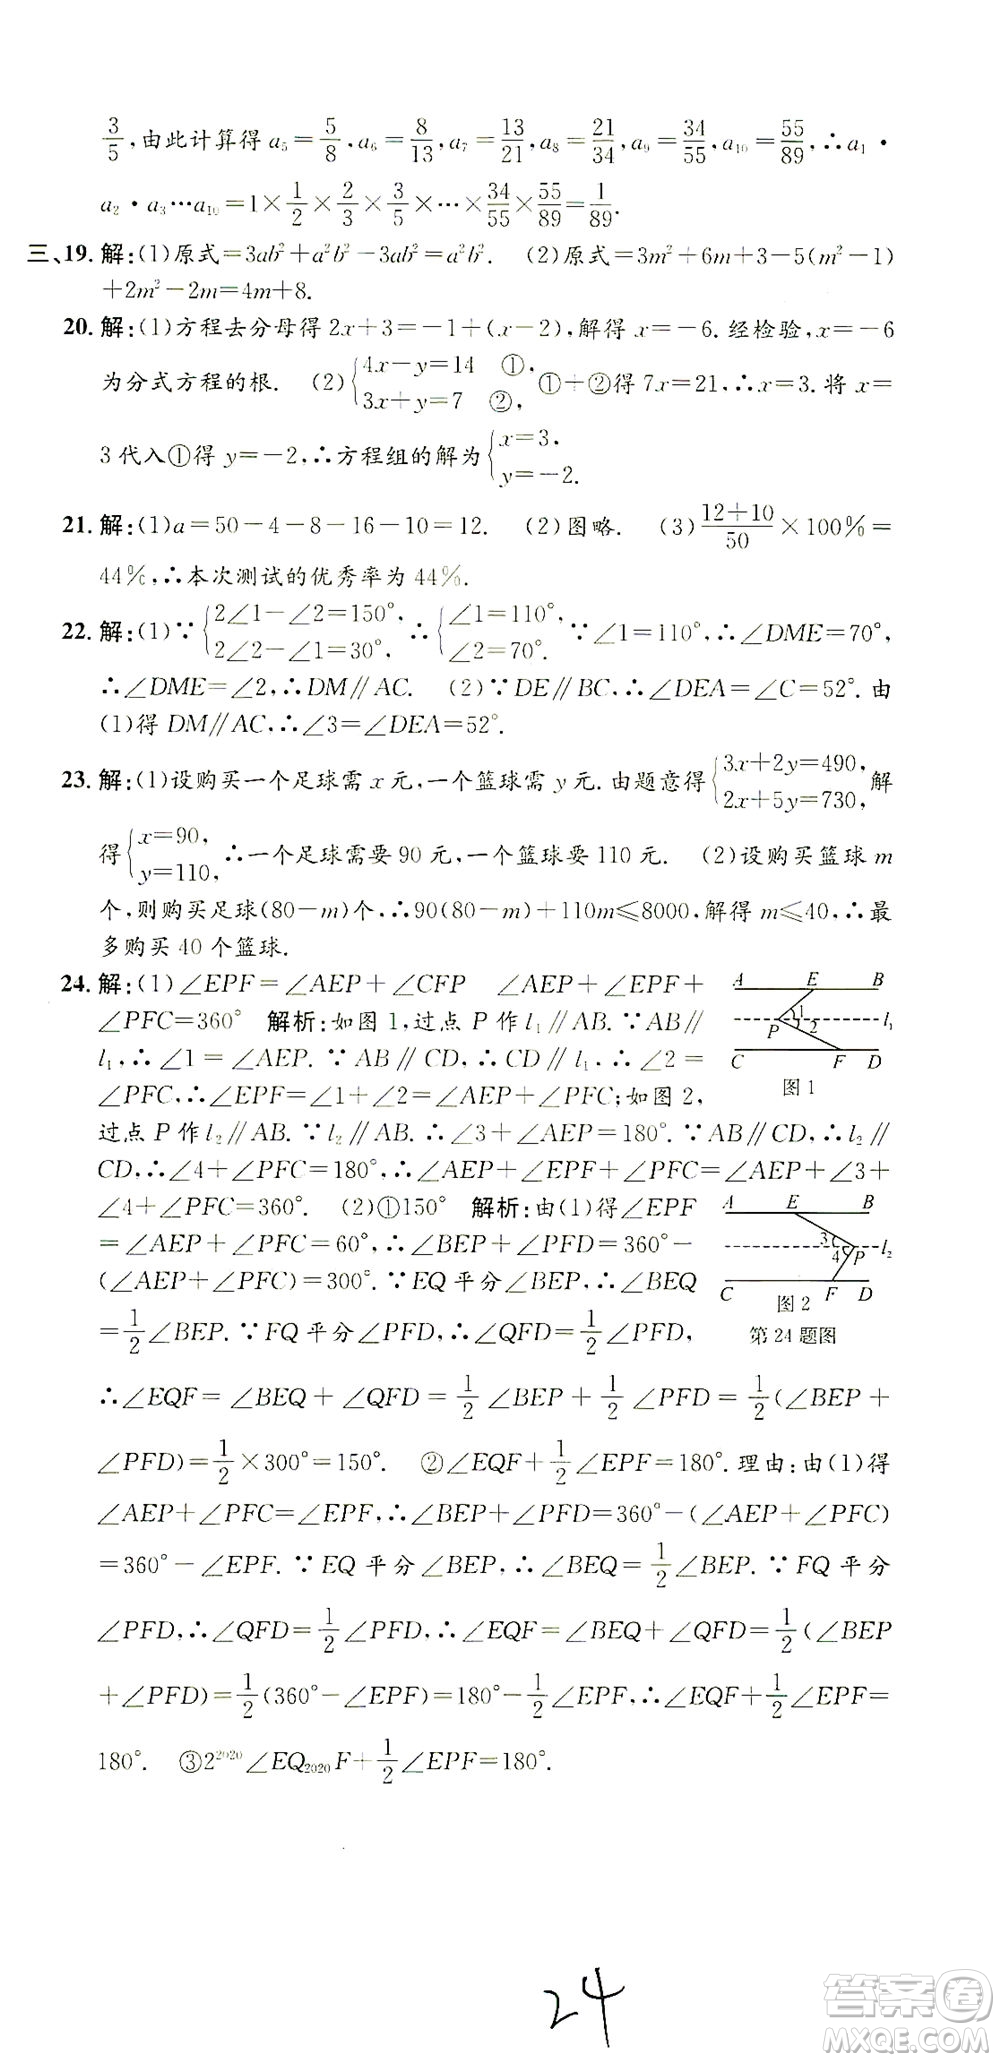 3/5,由此计算得 a₅=5/8,a₆=8/13,a₇=13/21,a₈=21/34,a₉=34/55,a₁₀=55/89,∴a₁·
a₂·a₃…a₁₀=1×1/2×2/3×3/5×…×34/55×55/89=1/89.
三、19. 解:(1)原式=3ab²+a²b²-3ab²=a²b². (2)原式=3m²+6m+3-5(m²-1)
+2m²-2m=4m+8.
20. 解:(1)方程去分母得 2x+3=-1+(x-2),解得 x=-6. 经检验,x=-6
为分式方程的根. (2){4x-y=14 ①, 3x+y=7 ②, ①+②得 7x=21,∴x=3. 将 x=
3代入①得 y=-2,∴方程组的解为{x=3, y=-2.
21. 解:(1)a=50-4-8-16-10=12. (2)图略. (3)(12+10)/50×100%=
44%,∴本次测试的优秀率为 44%.
22. 解:(1)∵{2∠1-∠2=150°, 2∠2-∠1=30°, ∴{∠1=110°, ∠2=70°. ∵∠1=110°,∴∠DME=70°,
∴∠DME=∠2,∴DM∥AC. (2)∵DE∥BC,∴∠DEA=∠C=52°. 由
(1)得 DM∥AC,∴∠3=∠DEA=52°.
23. 解:(1)设购买一个足球需 x 元,一个篮球需 y 元. 由题意得{3x+2y=490, 2x+5y=730, 解
得{x=90, y=110, ∴一个足球需要 90 元,一个篮球要 110 元. (2)设购买篮球 m
个,则购买足球(80-m)个,∴90(80-m)+110m≤8000,解得 m≤40,∴最
多购买 40 个篮球.
24. 解:(1)∠EPF=∠AEP+∠CFP ∠AEP+∠EPF+
∠PFC=360° 解析:如图 1,过点 P 作 l₁∥AB. ∵AB∥
l₁,∴∠1=∠AEP. ∵AB∥CD,∴CD∥l₁. ∴∠2=
∠PFC,∴∠EPF=∠1+∠2=∠AEP+∠PFC;如图 2,
过点 P 作 l₂∥AB. ∵l₂∥AB. ∴∠3+∠AEP=180°. ∵AB∥CD,∴l₂∥
CD,∴∠4+∠PFC=180°,∴∠AEP+∠EPF+∠PFC=∠AEP+∠3+
∠4+∠PFC=360°. (2)①150° 解析:由(1)得∠EPF
=∠AEP+∠CFP=60°,∴∠BEP+∠PFD=360°-
(∠AEP+∠PFC)=300°. ∵EQ 平分∠BEP,∴∠BEQ
=1/2∠BEP. ∵FQ 平分∠PFD,∴∠QFD=1/2∠PFD,
∴∠EQF=∠BEQ+∠QFD=1/2∠BEP+1/2∠PFD=1/2(∠BEP+
∠PFD)=1/2×300°=150°. ②∠EQF+1/2∠EPF=180°. 理由:由(1)得
∠AEP+∠PFC=∠EPF,∴∠BEP+∠PFD=360°-(∠AEP+∠PFC)
=360°-∠EPF. ∵EQ 平分∠BEP,∴∠BEQ=1/2∠BEP. ∵FQ 平分
∠PFD,∴∠QFD=1/2∠PFD,∴∠EQF=∠BEQ+∠QFD=1/2(∠BEP
+∠PFD)=1/2(360°-∠EPF)=180°-1/2∠EPF,∴∠EQF+1/2∠EPF=
180°. ③2²⁰²⁰∠EQ₂₀₂₀F+1/2∠EPF=180°.
A E B
1
P 2 l₁
C F D
图 1
A E B
3
4 P l₂
C F D
图 2
第 24 题图
24
答案圈
MXQE.COM